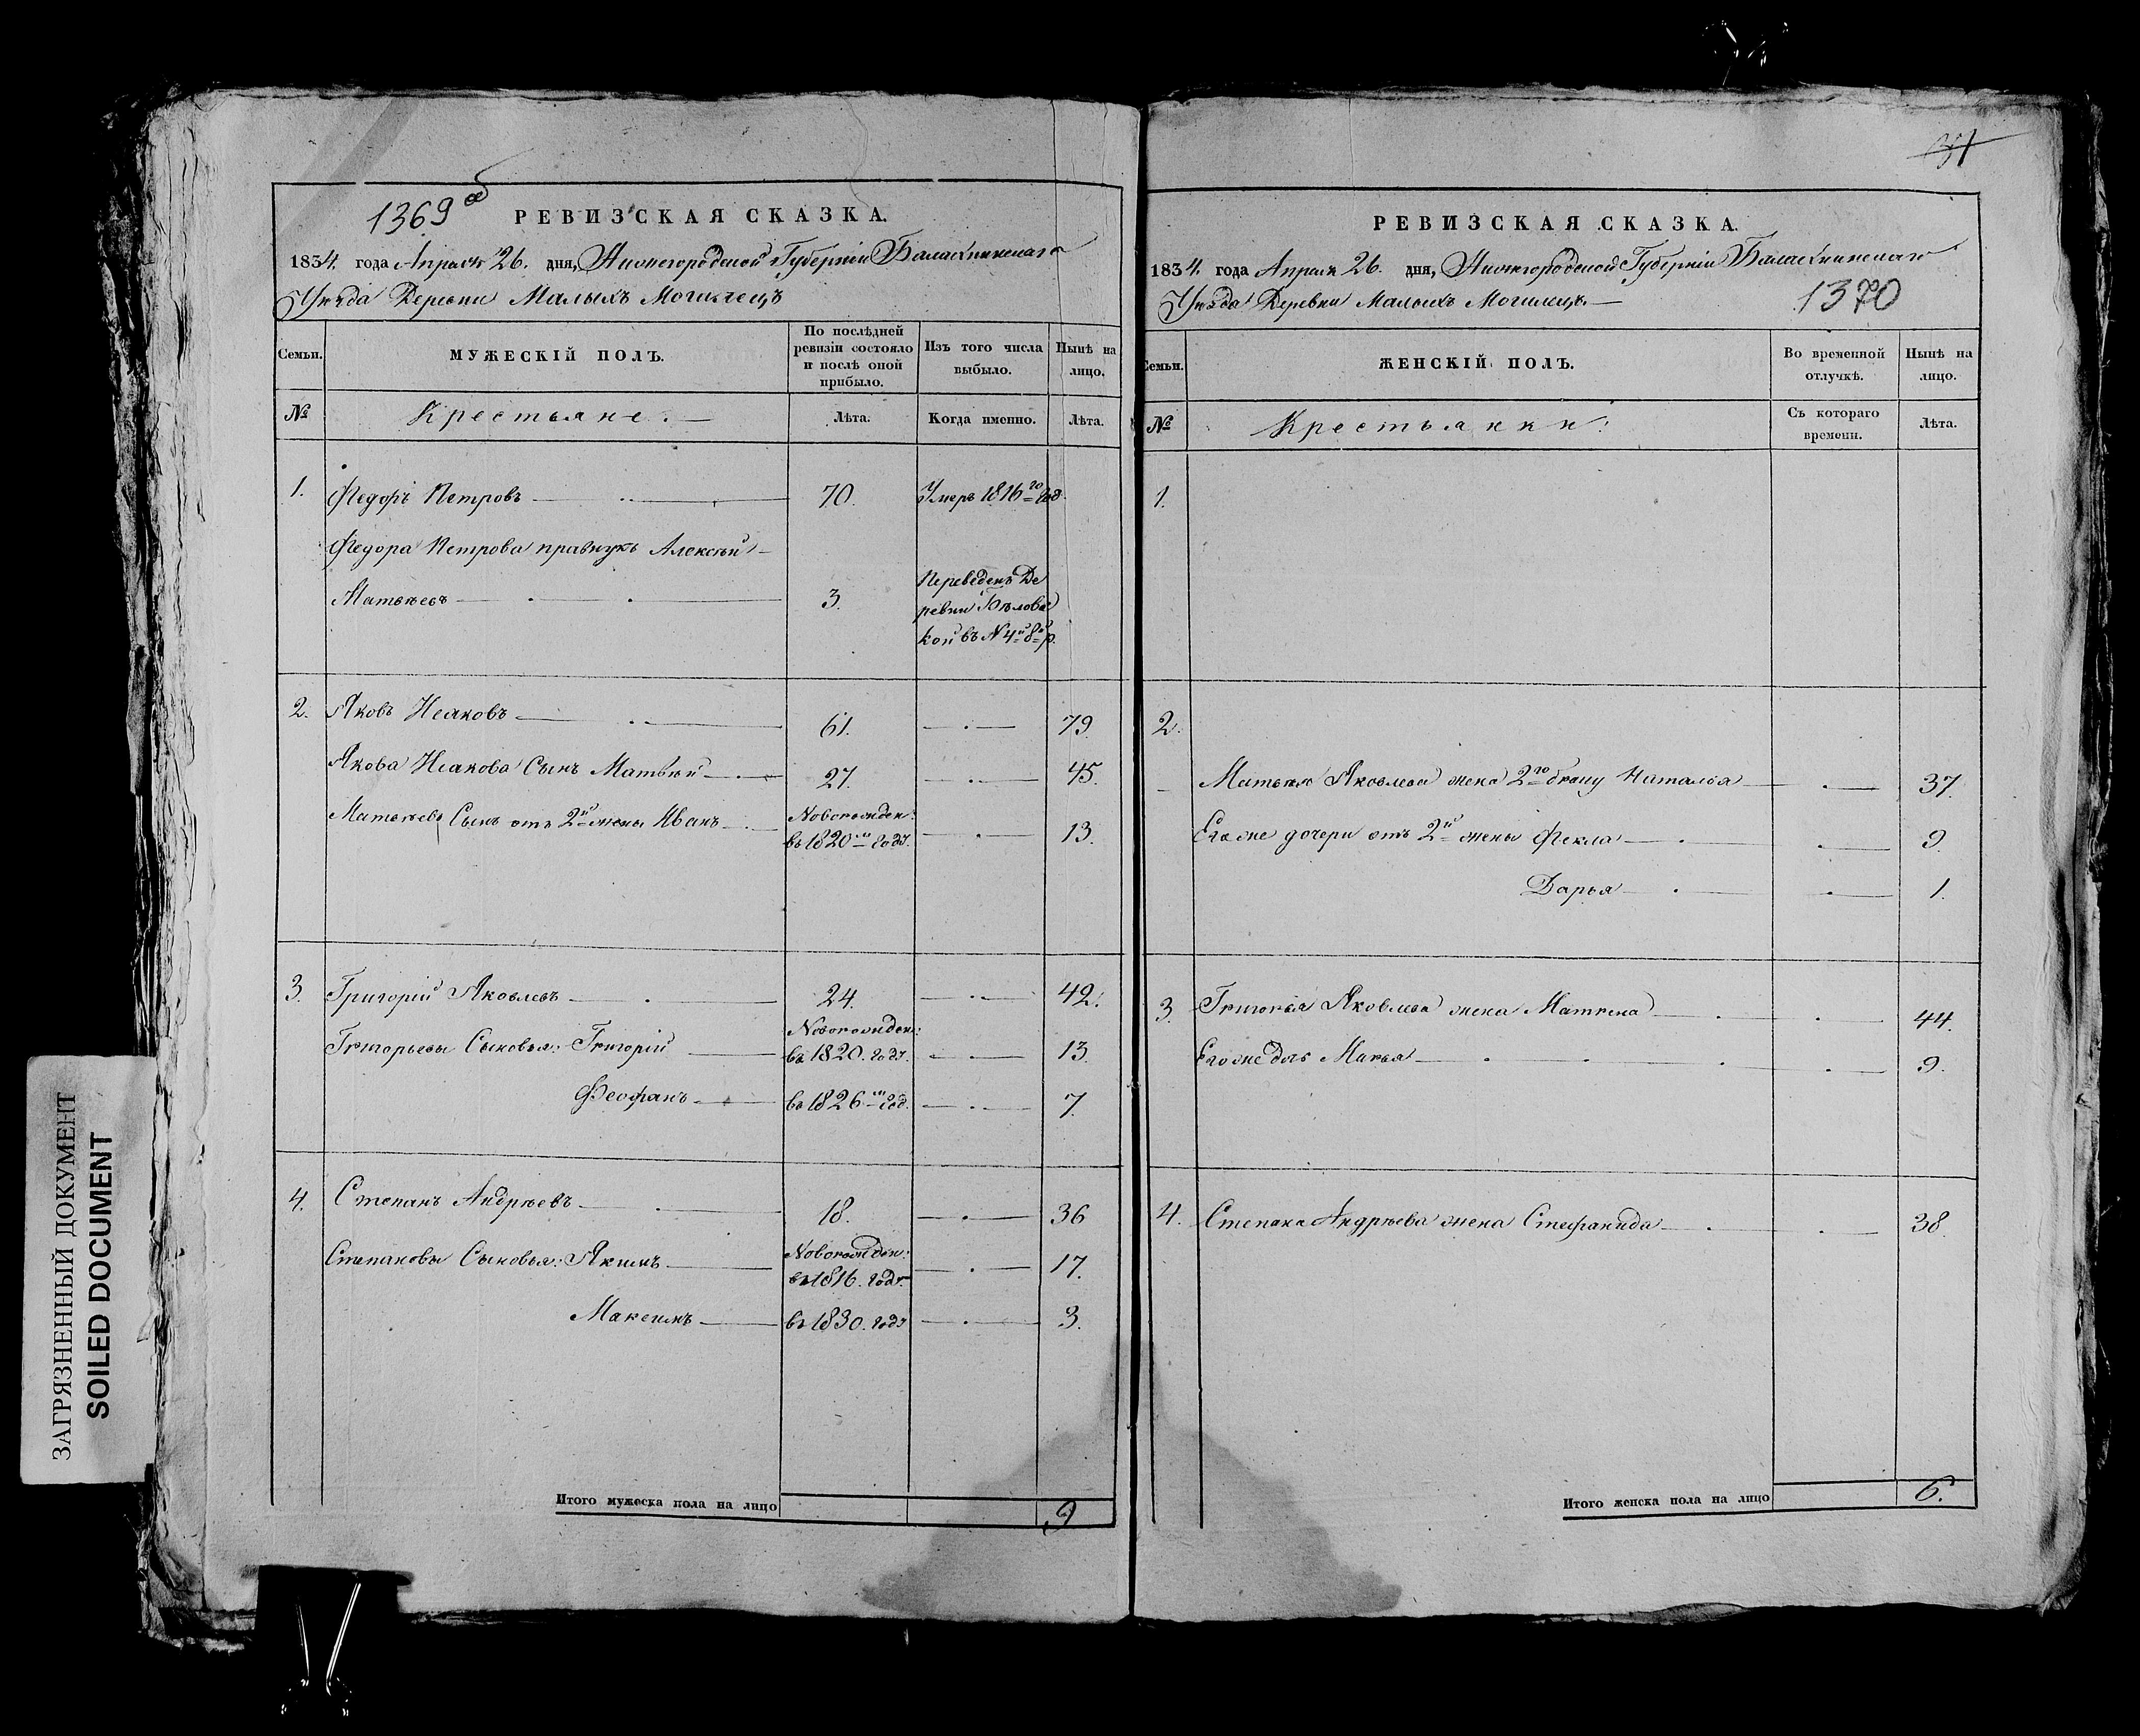 1369 об
РЕВИЗСКАЯ СКАЗКА.
1834. года Апреля 26. дня, Нижегородской Губерніи Балахнинскаго
Уѣзда Деревни Малыхъ Могилецъ
Семьи.
МУЖЕСКІЙ ПОЛЪ.
По послѣдней
ревизіи состояло
и послѣ оной
прибыло.
Изъ того числа
выбыло.
Нынѣ на
лицо.
№
Крестьяне:
Лѣта.
Когда именно.
Лѣта.
1. Федоръ Петровъ 70. Умеръ 1816го год.
Федора Петрова правнукъ Алексѣй
Матвѣевъ 3.
Переведенъ Де
ревни
кой въ N 4й 8й р.
2. Яковъ Исаковъ 61. 79.
Якова Исакова Сынъ Матвѣй 27. 45.
Матвѣевъ Сынъ отъ 2й жены Иванъ
Новорожден:
въ 1820м годѣ. 13.
3. Григорій Яковлевъ 24. 42.
Григорьевы Сыновья: Григорій
Новорожден:
въ 1820. годѣ. 13.
Феофанъ въ 1826м год. 7.
4. Степанъ Андрѣевъ 18. 36
Степановы Сыновья: Якимъ
Новорожден:
въ 1816. годѣ. 17.
Максимъ въ 1830. годѣ 3.
Итого мужеска пола на лицо 9
31
РЕВИЗСКАЯ СКАЗКА.
1834. года Апреля 26. дня, Нижегородской Губерніи Балахнинскаго
Уѣзда Деревни Малыхъ Могилецъ
1370
Семьи.
ЖЕНСКІЙ ПОЛЪ.
Во временной
отлучкѣ.
Нынѣ на
лицо.
№
Крестьянки:
Съ котораго
времени.
Лѣта.
1.
2.
Матвѣя Яковлева жена 2го браку Наталья 37.
Его же дочери отъ 2й жены Фекла 9.
Дарья 1.
3. Григорья Яковлева жена Матрена 44.
Его же дочь Марья 9.
4. Степана Андрѣева жена Стефанида 38.
Итого женска пола на лицо 6.
ЗАГРЯЗНЕННЫЙ ДОКУМЕНТ
SOILED DOCUMENT